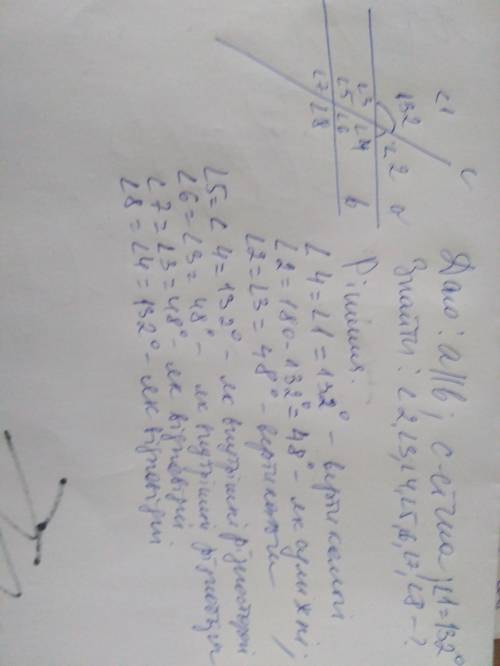 Дано: a||b, c-січна, ∠1=132°
Знайти: ∠2,∠3,∠4,∠5,∠6,∠7,∠8-?
∠1
c
132
∠2
a
∠3 ∠4
∠5 ∠6
b
∠7 ∠8
Рішення.
∠4=∠1=132° - вертикальні
∠2=180-132°=48° - як суміжні,
∠2=∠3=48° - вертикальні
∠5=∠4=132° - як внутрішні різносторонні
∠6=∠3=48° - як внутрішні різносторонні
∠7=∠3=48° - як відповідні
∠8=∠4=132° - як відповідні